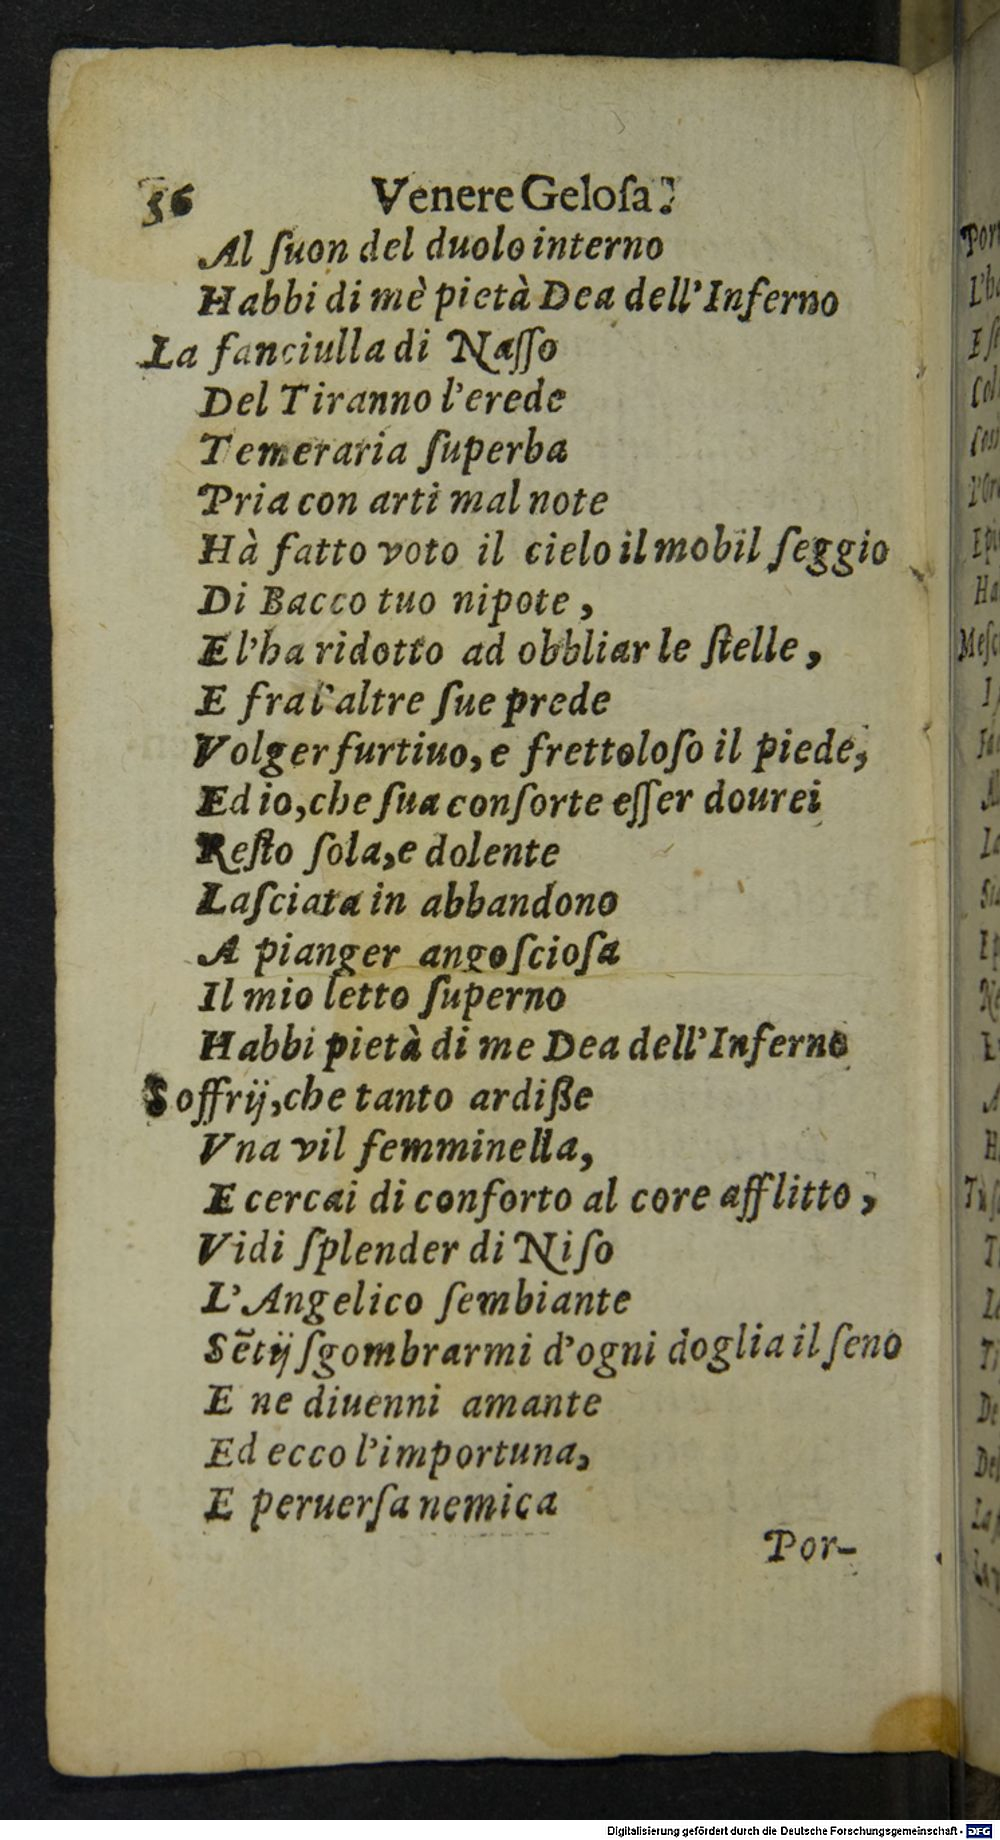 56 Venere Geloſa.
Al ſuon del duolo interno
Habbi di mè pietà Dea dell'Inferno
La fanciulla di Naſſo
Del Tiranno l'erede
Temeraria ſuperba
Pria con arti mal note
Hà fatto voto il cielo il mobil ſeggio
Di Bacco tuo nipote,
E l'ha ridotto ad obbliar le ſtelle,
E fra l'altre ſue prede
Volger furtiuo, e frettoloſo il piede,
Ed io, che ſua conſorte eſſer dourei
Reſto ſola, e dolente
Laſciata in abbandono
A pianger angoſcioſa
Il mio letto ſuperno
Habbi pietà di me Dea dell'Inferno
Soffrij, che tanto ardiße
Vna vil femminella,
E cercai di conforto al core afflitto,
Vidi ſplender di Niſo
L'Angelico ſembiante
Sẽtij ſgombrarmi d'ogni doglia il ſeno
E ne diuenni amante
Ed ecco l'importuna,
E peruerſa nemica
Por-
Digitalisierung gefördert durch die Deutsche Forschungsgemeinschaft - DFG